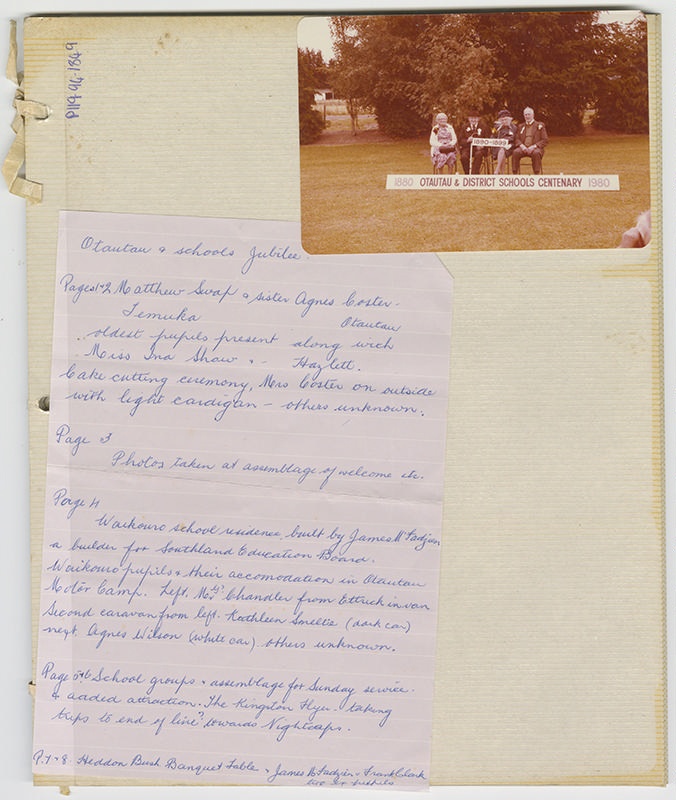 P119.94-1349
1890-1899
1880 OTAUTAU & DISTRICT SCHOOLS CENTENARY 1980
Otautau & schools Jubilee.
Pages 1+2 Matthew Swap & sister Agnes Coster -
Temuka Otautau
oldest pupils present along with
Miss Ina Shaw & - Hazlett.
Cake cutting ceremony, Mrs Coster on outside
with light cardigan - others unknown.
Page 3
Photos taken at assemblage of welcome etc.
Page 4
Waikouro school residence, built by James McFadzien
a builder for Southland Education Board.
Waikouro pupils & their accomodation in Otautau
Motor Camp. Left. Mrs Chandler from Ettrick in van
Second caravan from left. Kathleen Smellie (dark car)
next. Agnes Wilson (white car). others unknown.
Page 5+6 School groups & assemblage for Sunday service.
& added attraction. The Kingston Flyer - taking
trips to end of line? towards Nightcaps.
P.7+8. Heddon Bush Banquet Table & James McFadzien & Frank Clark
two ex pupils